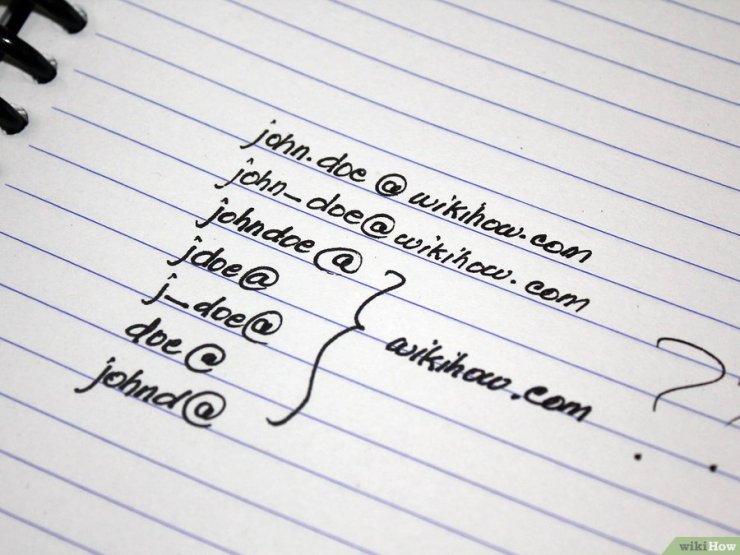 john.doe@wikihow.com
john_doe@wikihow.com
johndoe@
jdoe@
j_doe@
doe@
johnd@
} wikihow.com ??
wikiHow